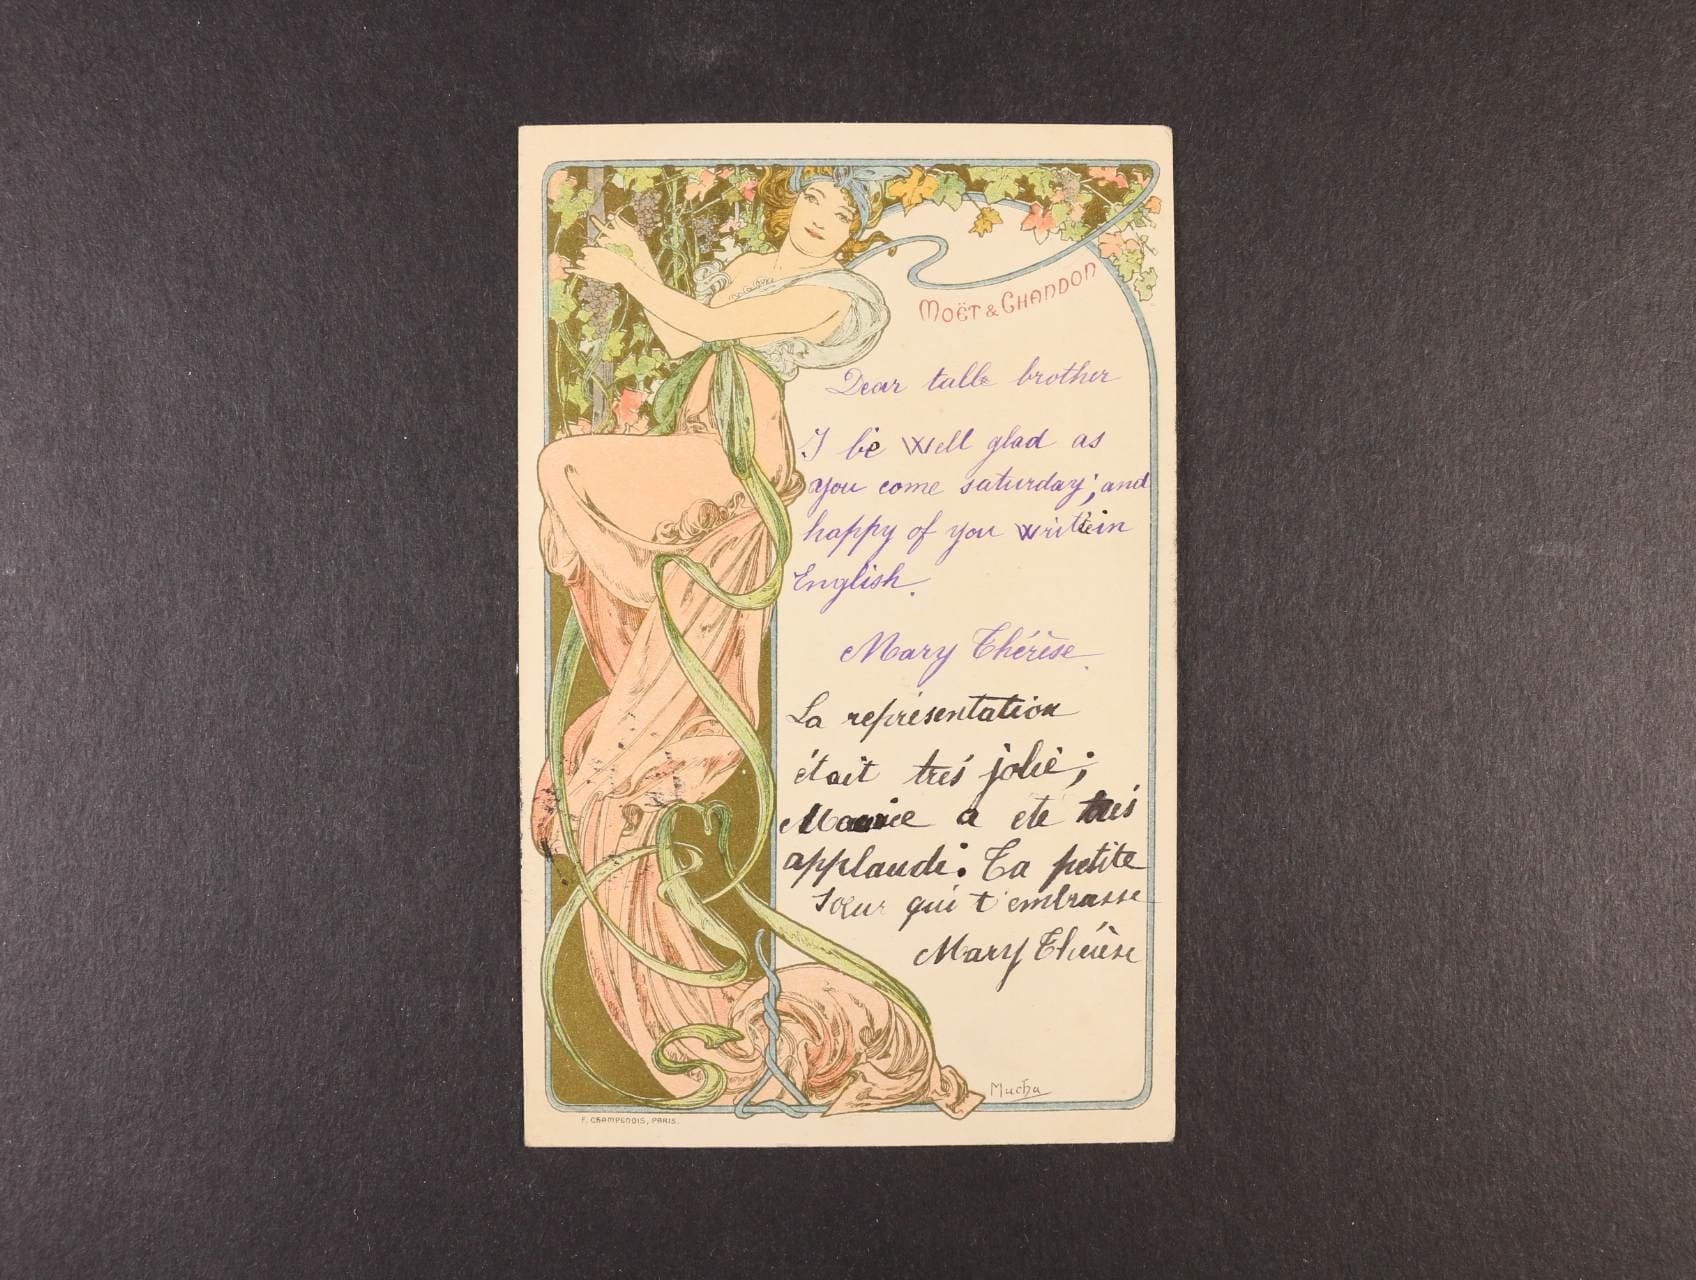 MOËT & CHANDON
Dear talle brother
I be well glad as
you come saturday; and
happy of you writtein
English.
Mary Thérèse.
La représentation
était trés jolie;
a été trés
applaudi. Ta petite
soeur qui t'embrasse
Mary Thérèse
Mucha
F. CHAMPENOIS, PARIS.